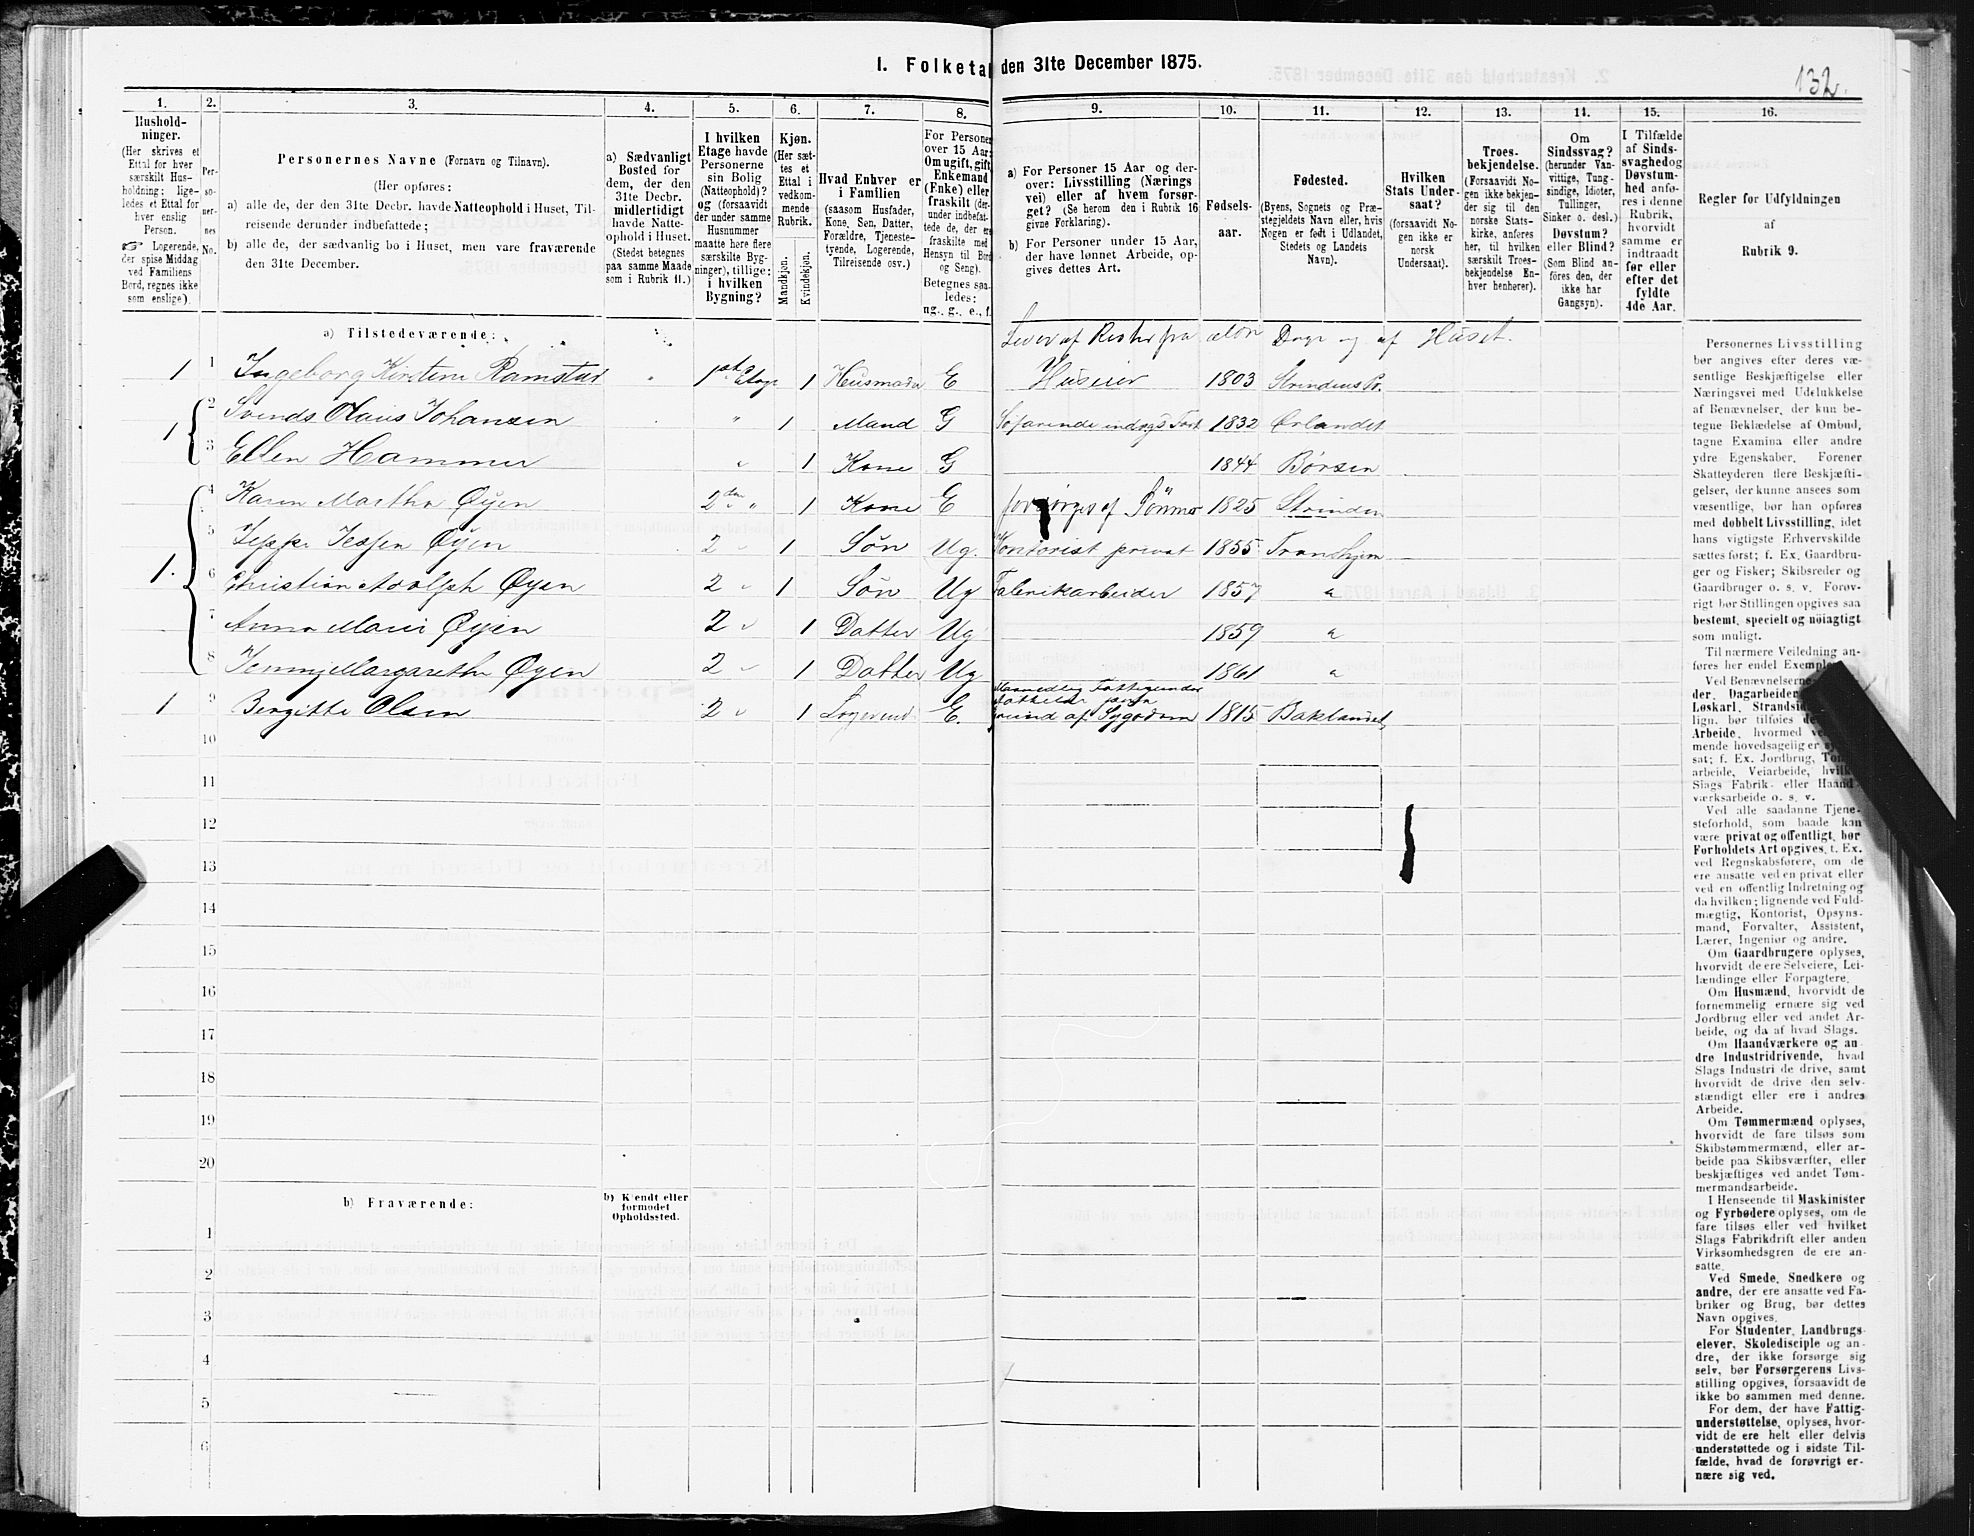 I. Folketal den 31te December 1875.
132.
1. 2. 3. 4. 5. 6. 7. 8. 9. 10. 11. 12. 13. 14. 15. 16.
Hushold-
ninger.
(Her skrives et
Ettal for hver
særskilt Hus-
holdning; lige-
ledes et Ettal for
hver enslig
Person.
☞ Logerende,
der spise Middag
ved Familiens
Bord, regnes ikke
som enslige).
Per-
so-
ner-
nes
No.
Personernes Navne (Fornavn og Tilnavn).
(Her opføres:
a) alle de, der den 31te Decbr. havde Natteophold i Huset, Til-
reisende derunder indbefattede;
b) alle de, der sædvanlig bo i Huset, men vare fraværende
den 31te December.
a) Sædvanligt
Bosted for
dem, der den
31te Decbr.
midlertidigt
havde Natte-
ophold i Huset.
(Stedet betegnes
paa samme Maade
som i Rubrik 11.)
I hvilken
Etage havde
Personerne
sin Bolig
(Natteophold)?
og (forsaavidt
der under samme
Husnummer
maatte høre flere
særskilte Byg-
ninger), tillige:
i hvilken
Bygning?
Kjøn.
(Her sæt-
tes et
Ettal i
vedkom-
mende
Rubrik.
Mandkjøn.
Kvindekjøn.
Hvad Enhver er
i Familien
(saasom Husfader,
Kone, Søn, Datter,
Forældre, Tjeneste-
tyende, Logerende,
Tilreisende osv.)
For Personer
over 15 Aar:
Om ugift, gift,
Enkemand
(Enke) eller
fraskilt (der-
under indbefat-
tede de, der ere
fraskilte med
Hensyn til Bord
og Seng).
Betegnes saa-
ledes:
ug., g., e., f.
a) For Personer 15 Aar og der-
over: Livsstilling (Nærings
vei) eller af hvem forsør-
get? (Se herom den i Rubrik 16
givne Forklaring).
b) For Personer under 15 Aar,
der have lønnet Arbeide, op-
gives dettes Art.
Fødsels-
aar.
Fødested.
(Byens, Sognets og Præ-
stegjeldets Navn eller, hvis
Nogen er født i Udlandet,
Stedets og Landets
Navn).
Hvilken
Stats Under-
saat?
(forsaavidt No-
gen ikke er
norsk
Undersaat).
Troes-
bekjendelse.
(Forsaavidt No-
gen ikke bekjen-
der sig til den
norske Stats-
kirke, anføres
her, til hvilken
særskilt Troes-
bekjendelse En-
hver henhører).
Om
Sindssvag?
(herunder Van-
vittige, Tung-
sindige, Idioter,
Tullinger,
Sinker o. desl.)
Døvstum?
eller Blind?
(Som Blind an-
føres den, der
ikke har
Gangsyn).
I Tilfælde
af Sinds-
svaghed og
Døvstum-
hed anfø-
res i denne
Rubrik,
hvorvidt
samme er
indtraadt
før eller
efter det
fyldte
4de Aar.
Regler for Udfyldningen
af
Rubrik 9.
a) Tilstedeværende:
Lever af Rester fra ældre Dage og af Huset.
1 1 Ingeborg Kirstine Ramstad 1ste Etage 1 Husmoder E Huseier 1803 Strindens Pr.
1 2 Svends Olaus Johansen " 1 Mand G Søfarende indrigs Fart 1832 Ørlandet
3 Ellen Hammer " 1 Kone G 1844 Børsen
1. 4 Karen Martha Øyen 2den " 1 Kone E forsørges af Sönner 1825 Strinden
5 Jeppe Jessen Øyen 2 " 1 Søn Ug. Kontorist privat 1855 Trondhjem
6 Christian Adolph Øyen 2 " 1 Søn Ug Fabrikarbeider 1857 "
7 Anna Marie Øyen 2 " 1 Datter Ug 1859 "
8 Jenny Margarethe Øyen 2 " 1 Datter Ug 1861 "
1 9 Bergitte Olsen 2 " 1 Logerend E. Maanedlig Fattigunder
støttelse paa
Grund af Sygedom 1815 Baklandet
10
11
12
13
14
15
16
17
18
19
20
b) Fraværende:
b) Kjendt eller
formodet
Opholdssted.
1
2
3
4
5
6
Personernes Livsstilling
bør angives efter deres væ-
sentlige Beskjæftigelse eller
Næringsvei med Udelukkelse
af Benævnelser, der kun be-
tegne Beklædelse af Ombud,
tagne Examina eller andre
ydre Egenskaber. Forener
Skatteyderen flere Beskjæfti-
gelser, der kunne ansees som
væsentlige, bør han opføres
med dobbelt Livsstilling, idet
hans vigtigste Erhvervskilde
sættes først; f. Ex. Gaardbru-
ger og Fisker; Skibsreder og
Gaardbruger o. s. v. Forøv-
rigt bør Stillingen opgives saa
bestemt, specielt og nøiagtigt
som muligt.
Til nærmere Veiledning an-
føres her endel Exempler:
Ved Benævnelserne
der, Dagarbeider,
Løskarl, Strandsid
lign. bør tilføies
Arbeide, hvormed
mende hovedsagelig er
sat; f. Ex. Jordbrug, Tom
arbeide, Veiarbeide, hvilk
Slags Fabrik- eller Haand-
værksarbeide o. s. v.
Ved alle saadanne Tjene-
steforhold, som baade kan
være privat og offentligt, bør
Forholdets Art opgives, t. Ex.
ved Regnskabsførere, om de
ere ansatte ved en privat eller
ved en offentlig Indretning og
da hvilken; lignende ved Fuld-
mægtig, Kontorist, Opsyns-
mand, Forvalter, Assistent,
Lærer, Ingeniør og andre.
Om Gaardbrugere oplyses,
hvorvidt de ere Selveiere, Lei-
lændinge eller Forpagtere.
Om Husmænd, hvorvidt de
fornemmelig ernære sig ved
Jordbrug eller ved andet Ar-
beide, og da af hvad Slags.
Om Haandværkere og an
dre Industridrivende, hvad
Slags Industri de drive, samt
hvorvidt de drive den selv-
stændigt eller ere i andres
Arbeide.
Om Tømmermænd oplyses,
hvorvidt de fare tilsøs som
Skibstømmermænd, eller ar-
beide paa Skibsværfter, eller
beskjæftiges ved andet Tøm-
mermandsarbeide.
I Henseende til Maskinister
og Fyrbødere oplyses, om de
fare tilsøs eller ved hvilket
Slags Fabrikdrift eller anden
Virksomhedsgren de ere an-
satte.
Ved Smede, Snedkere og
andre, der ere ansatte ved Fa-
briker og Brug, bør dettes
Navn opgives.
For Studenter, Landbrugs-
elever, Skoledisciple og an-
dre, der ikke forsørge sig
selv, bør Forsørgerens Livs-
stilling opgives, forsaavidt de
ikke bo sammen med denne.
For dem, der have Fattig-
understøttelse, oplyses, hvor-
vidt de ere helt eller delvis
understøttede og i sidste Til-
fælde, hvad de forøvrigt er-
nære sig ved.